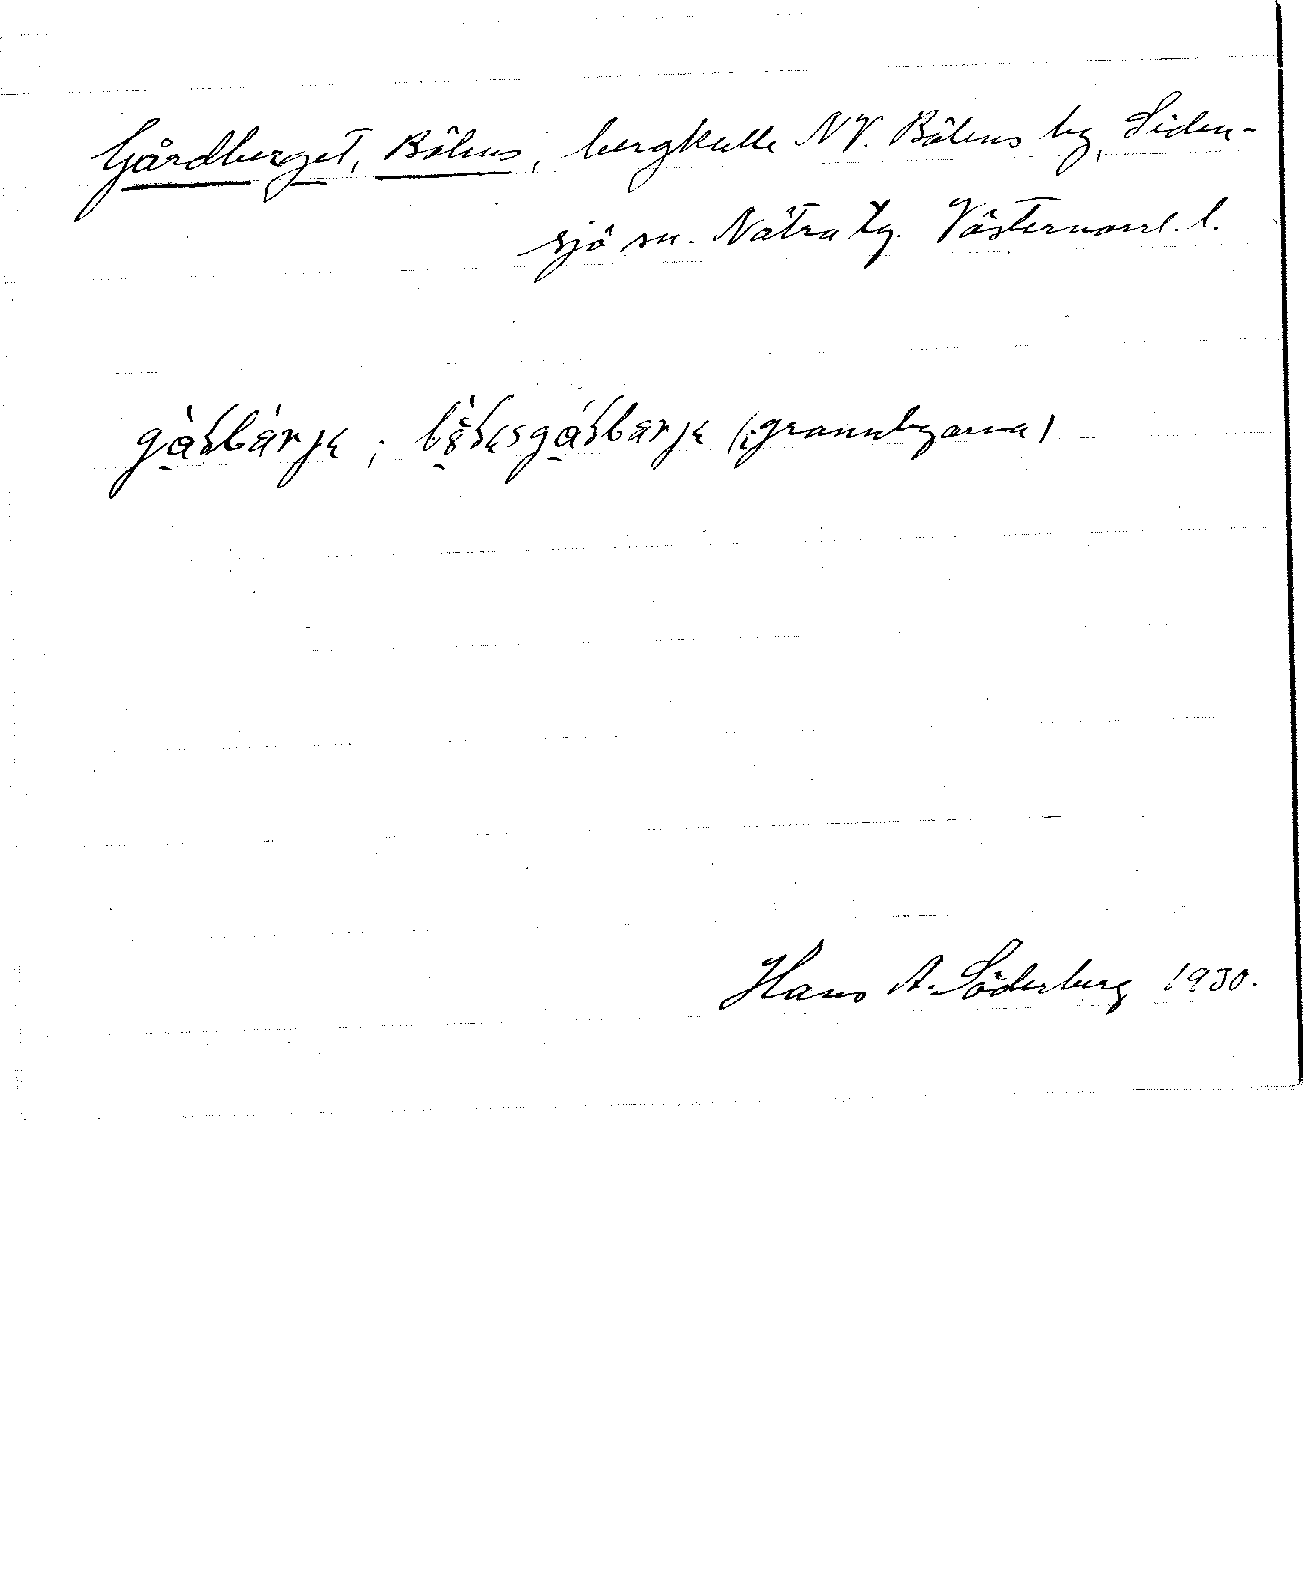 Gårdberget, Bölens, bergkulle NV. Bölens by, Siden-
sjö sn. Nätra tg. Västernorrl. l.
(grannbyarna)
Hans A. Söderberg 1930.